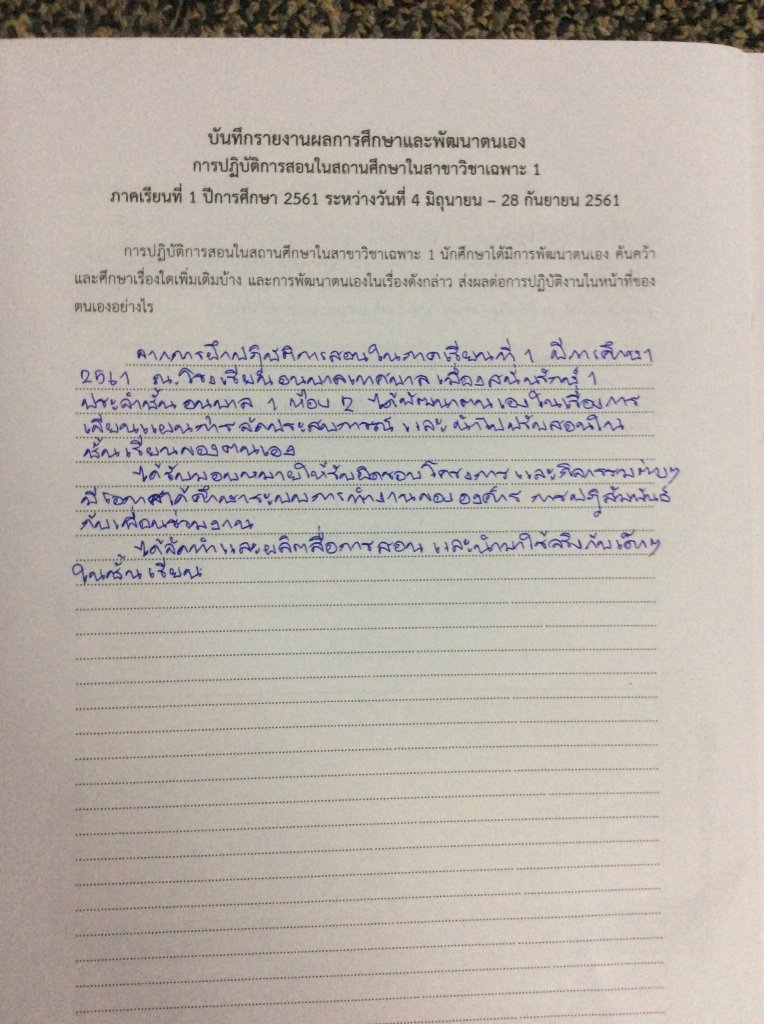 บันทึกรายงานผลการศึกษาและพัฒนาตนเอง
การปฏิบัติการสอนในสถานศึกษาในสาขาวิชาเฉพาะ 1
ภาคเรียนที่ 1 ปีการศึกษา 2561 ระหว่างวันที่ 4 มิถุนายน – 28 กันยายน 2561
การปฏิบัติการสอนในสถานศึกษาในสาขาวิชาเฉพาะ 1 นักศึกษาได้มีการพัฒนาตนเอง ค้นคว้า
และศึกษาเรื่องใดเพิ่มเติมบ้าง และการพัฒนาตนเองในเรื่องดังกล่าว ส่งผลต่อการปฏิบัติงานในหน้าที่ของ
ตนเองอย่างไร
จากการฝึกปฏิบัติการสอนในภาคเรียนที่ 1 ปีการศึกษา
2561 ณ โรงเรียนอนุบาลเทศบาลเมือง 1
ประจำชั้นอนุบาล 1 ห้อง 2 ได้พัฒนาตนเองในเรื่องการ
เขียนแผนการจัดประสบการณ์ และนำไปปรับสอนใน
ชั้นเรียนของตนเอง
ได้รับมอบหมายให้รับผิดชอบโครงการ และกิจกรรมต่างๆ
มีโอกาสได้ศึกษาระบบการทำงานขององค์กร การปฏิสัมพันธ์
กับเพื่อนร่วมงาน
ได้จัดทำและผลิตสื่อการสอน และนำมาใช้จริงกับเด็กๆ
ในชั้นเรียน